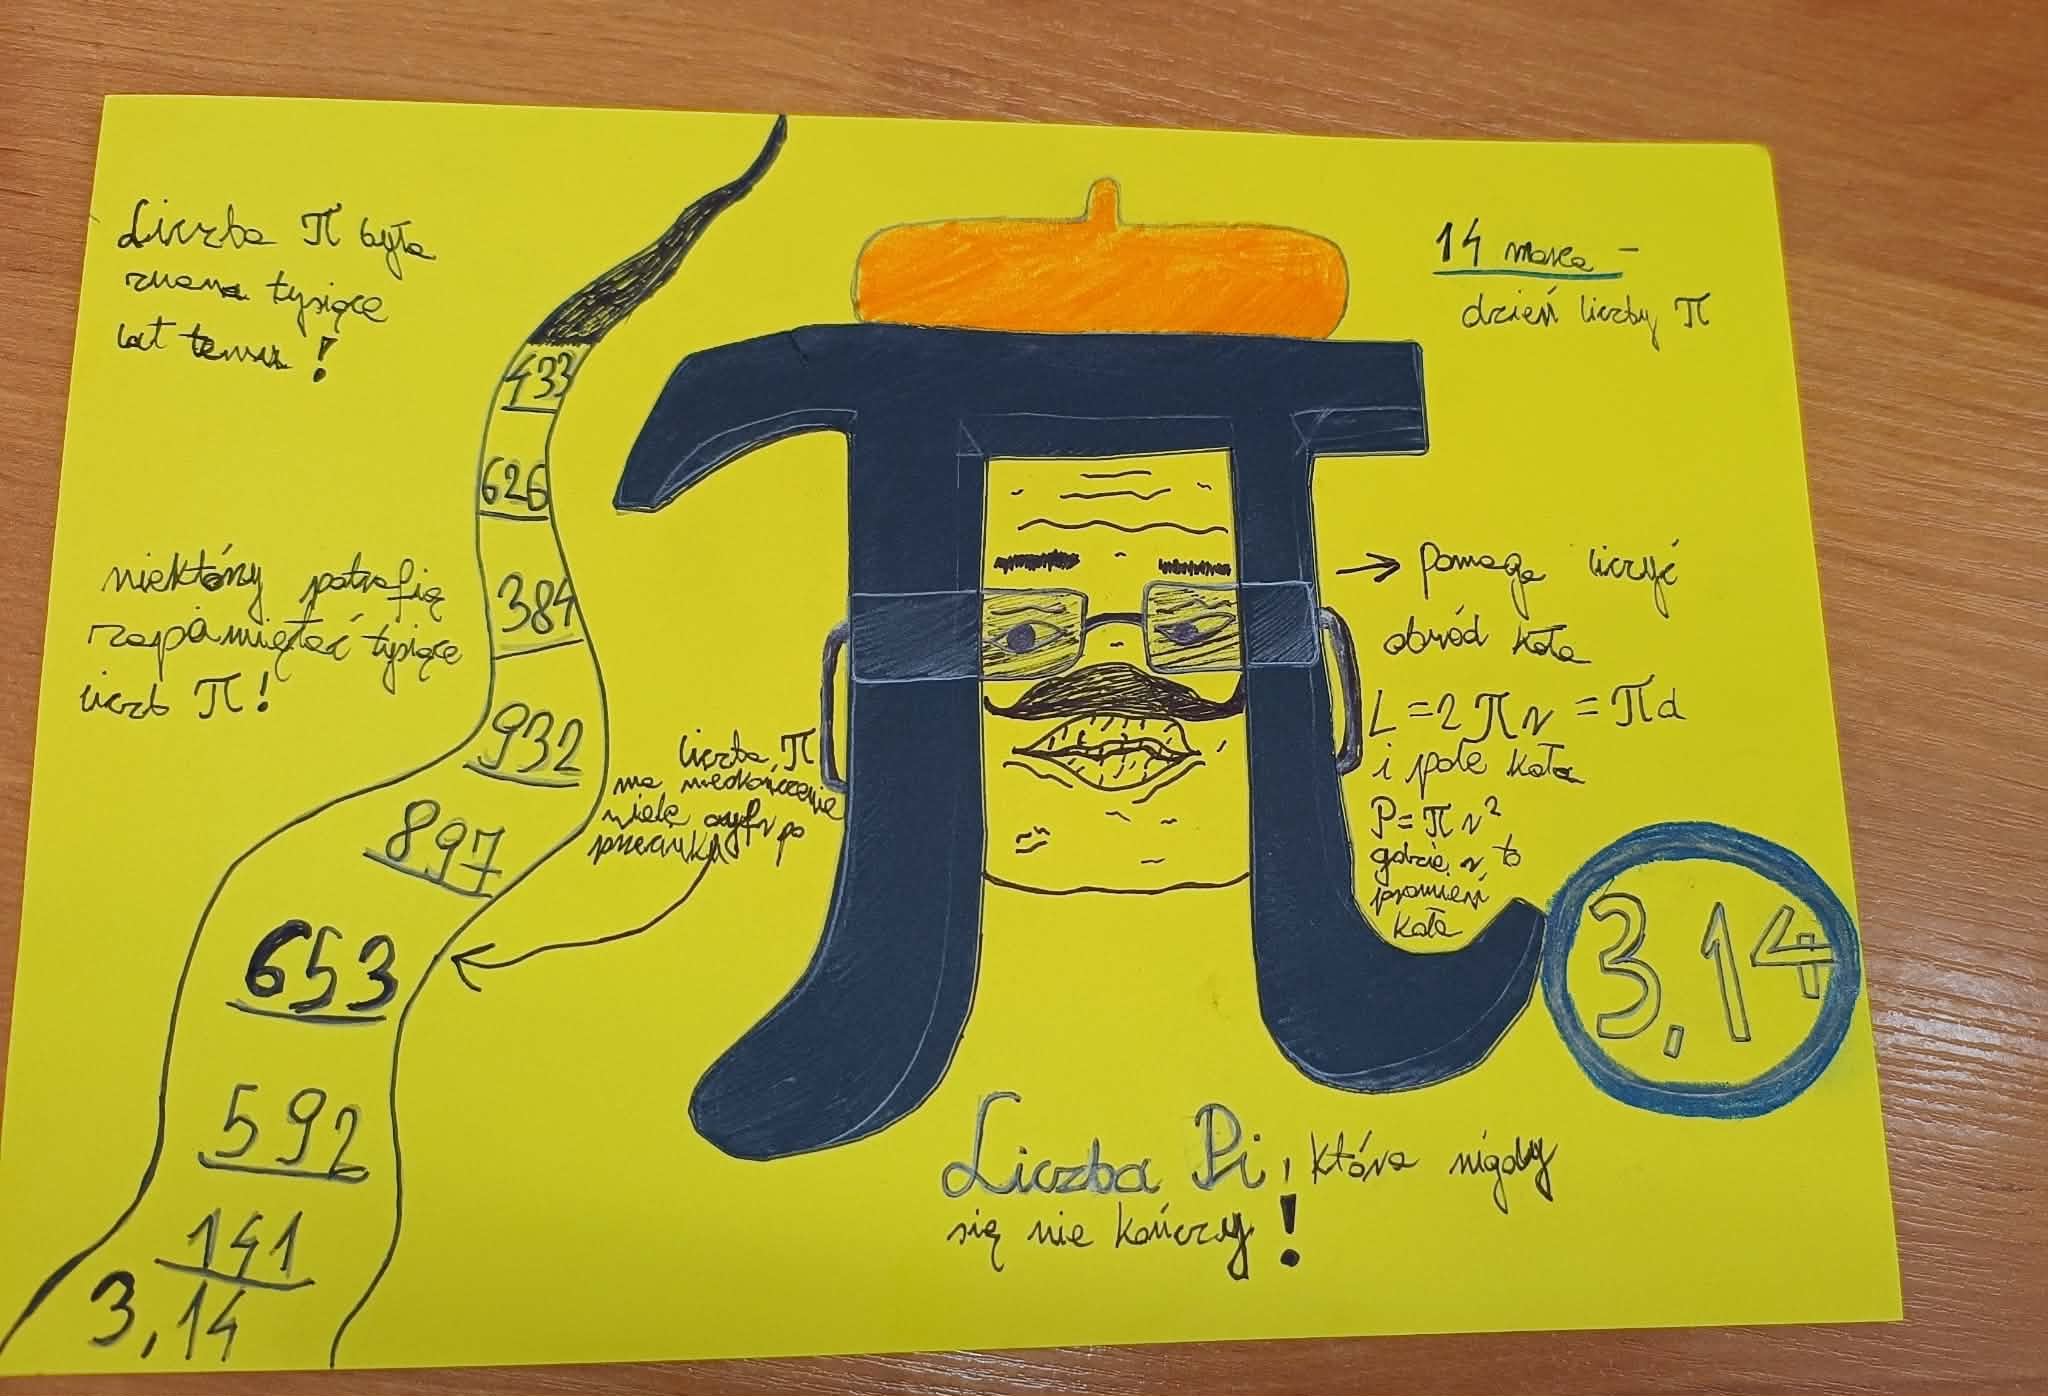 Liczba π była
znana tysiące
lat temu!
niektóry potrafią
zapamiętać tysiące
liczb π!
433
626
384
932
897
653
592
141
3,14
liczba π
ma nieskończenie
wiele cyfr po
przecinku
14 marca -
dzień liczby π
→ pomaga liczyć
obwód koła
L = 2πr = πd
i pole koła
P = πr²
gdzie r to
promień
koła
3,14
Liczba Pi, która nigdy
się nie kończy!